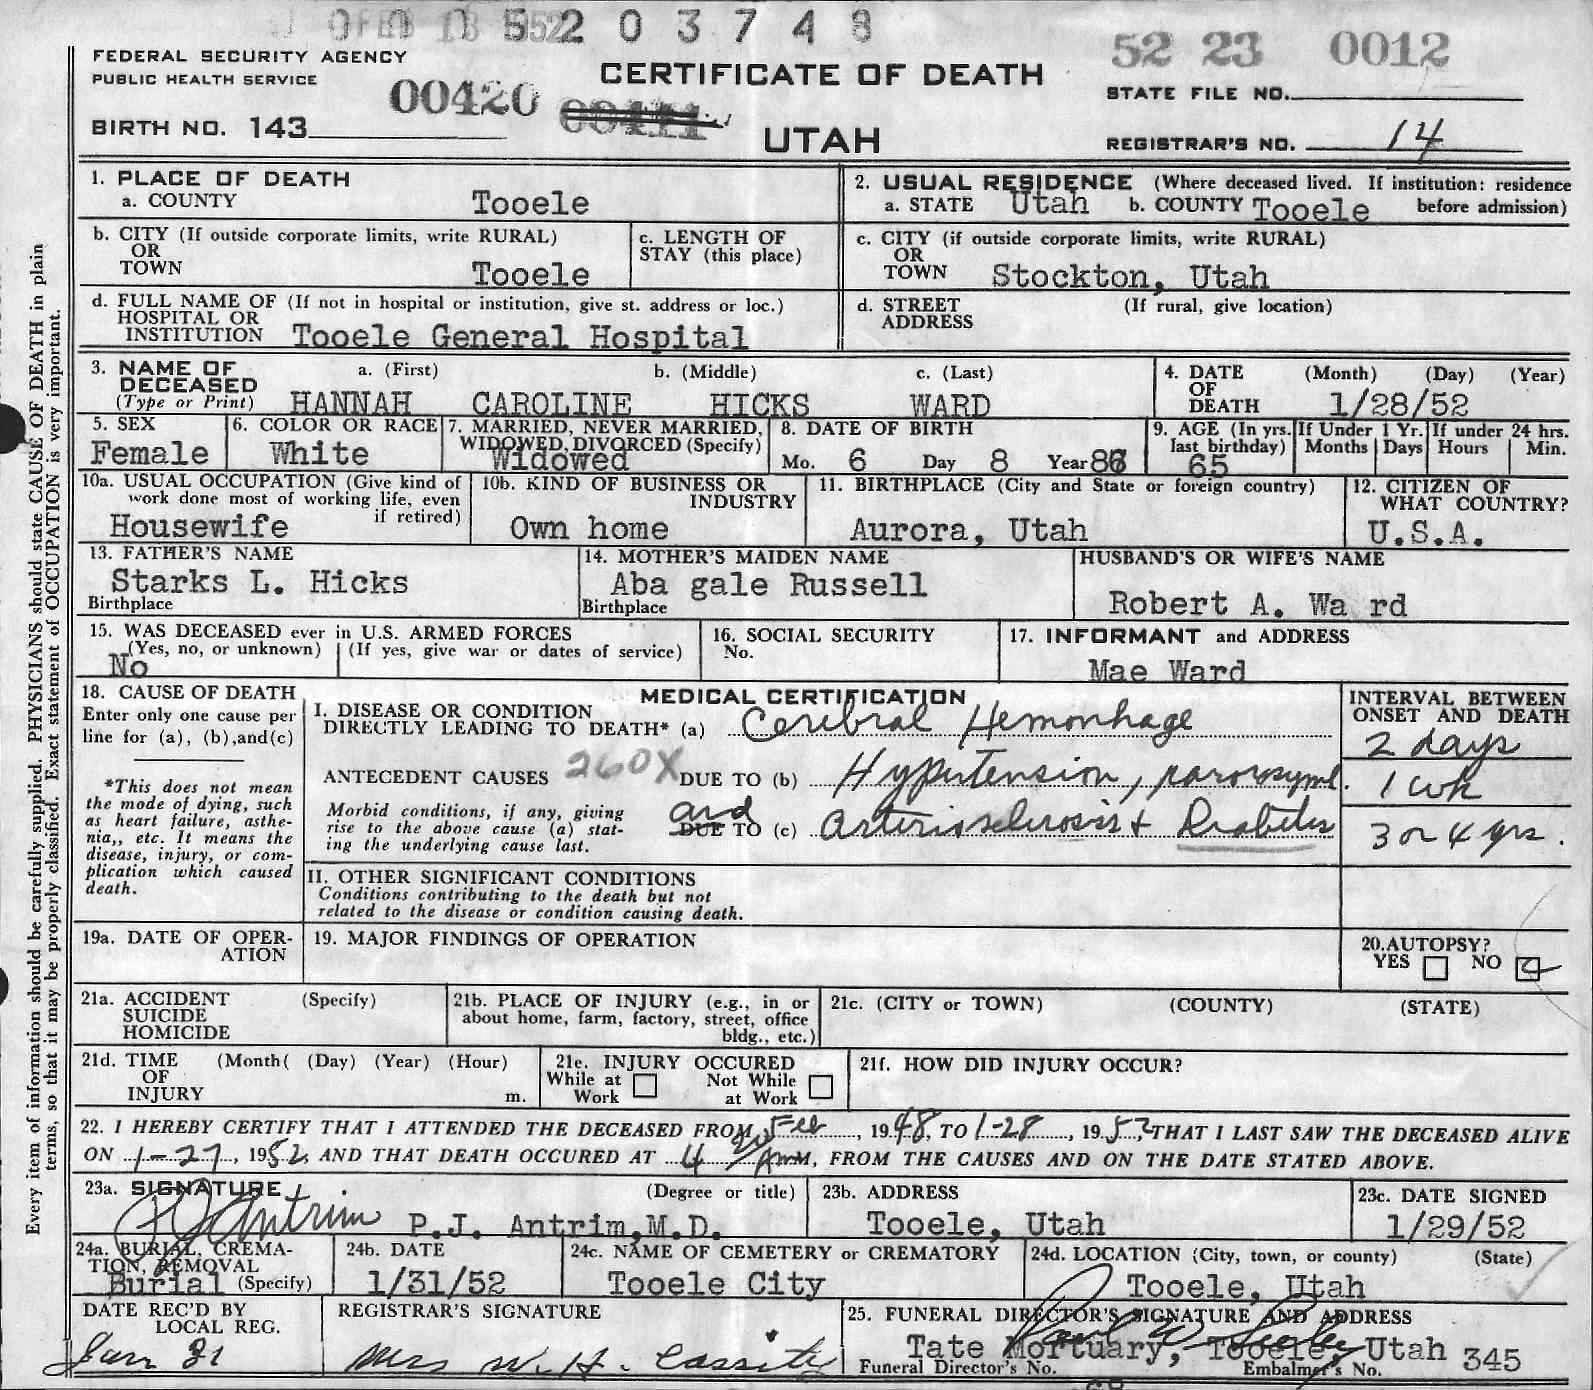 0 FEB 13 1952 5 2 0 3 7 4 8
52 23 0012
FEDERAL SECURITY AGENCY
PUBLIC HEALTH SERVICE
CERTIFICATE OF DEATH
STATE FILE NO.
00420 00411
BIRTH NO. 143
UTAH
REGISTRAR'S NO. 14
1. PLACE OF DEATH
a. COUNTY Tooele
2. USUAL RESIDENCE (Where deceased lived. If institution: residence
a. STATE Utah b. COUNTY Tooele before admission)
b. CITY (If outside corporate limits, write RURAL)
OR
TOWN Tooele
c. LENGTH OF
STAY (this place)
c. CITY (if outside corporate limits, write RURAL)
OR
TOWN Stockton, Utah
d. FULL NAME OF (If not in hospital or institution, give st. address or loc.)
HOSPITAL OR
INSTITUTION Tooele General Hospital
d. STREET (If rural, give location)
ADDRESS
3. NAME OF a. (First) b. (Middle) c. (Last)
DECEASED
(Type or Print) HANNAH CAROLINE HICKS WARD
4. DATE (Month) (Day) (Year)
OF
DEATH 1/28/52
5. SEX
Female
6. COLOR OR RACE
White
7. MARRIED, NEVER MARRIED,
WIDOWED, DIVORCED (Specify)
Widowed
8. DATE OF BIRTH
Mo. 6 Day 8 Year 86
9. AGE (In yrs.
last birthday)
65
If Under 1 Yr.
Months Days
If under 24 hrs.
Hours Min.
10a. USUAL OCCUPATION (Give kind of
work done most of working life, even
if retired)
Housewife
10b. KIND OF BUSINESS OR
INDUSTRY
Own home
11. BIRTHPLACE (City and State or foreign country)
Aurora, Utah
12. CITIZEN OF
WHAT COUNTRY?
U.S.A.
13. FATHER'S NAME
Starks L. Hicks
Birthplace
14. MOTHER'S MAIDEN NAME
Aba gale Russell
Birthplace
HUSBAND'S OR WIFE'S NAME
Robert A. Wa rd
15. WAS DECEASED ever in U.S. ARMED FORCES
(Yes, no, or unknown) (If yes, give war or dates of service)
No
16. SOCIAL SECURITY
No.
17. INFORMANT and ADDRESS
Mae Ward
18. CAUSE OF DEATH
Enter only one cause per
line for (a), (b),and(c)
*This does not mean
the mode of dying, such
as heart failure, asthe-
nia,, etc. It means the
disease, injury, or com-
plication which caused
death.
MEDICAL CERTIFICATION
I. DISEASE OR CONDITION
DIRECTLY LEADING TO DEATH* (a) Cerebral Hemorrhage
ANTECEDENT CAUSES 260X DUE TO (b) Hypertension, paroxysml.
Morbid conditions, if any, giving
rise to the above cause (a) stat-
ing the underlying cause last.
and
DUE TO (c) Arteriosclerosis + Diabetes
INTERVAL BETWEEN
ONSET AND DEATH
2 days
1 wk
3 or 4 yrs.
II. OTHER SIGNIFICANT CONDITIONS
Conditions contributing to the death but not
related to the disease or condition causing death.
19a. DATE OF OPER-
ATION
19. MAJOR FINDINGS OF OPERATION
20.AUTOPSY?
YES NO
21a. ACCIDENT (Specify)
SUICIDE
HOMICIDE
21b. PLACE OF INJURY (e.g., in or
about home, farm, factory, street, office
bldg., etc.)
21c. (CITY or TOWN) (COUNTY) (STATE)
21d. TIME (Month( (Day) (Year) (Hour)
OF
INJURY m.
21e. INJURY OCCURED
While at Work Not While at Work
21f. HOW DID INJURY OCCUR?
22. I HEREBY CERTIFY THAT I ATTENDED THE DECEASED FROM Feb, 1948, TO 1-28, 1952, THAT I LAST SAW THE DECEASED ALIVE
ON 1-27, 1952, AND THAT DEATH OCCURED AT 4 m, FROM THE CAUSES AND ON THE DATE STATED ABOVE.
23a. SIGNATURE (Degree or title)
PJ Antrim P.J. Antrim,M.D.
23b. ADDRESS
Tooele, Utah
23c. DATE SIGNED
1/29/52
24a. BURIAL, CREMA-
TION, REMOVAL
Burial (Specify)
24b. DATE
1/31/52
24c. NAME OF CEMETERY or CREMATORY
Tooele City
24d. LOCATION (City, town, or county) (State)
Tooele, Utah
DATE REC'D BY
LOCAL REG.
Jan 31
REGISTRAR'S SIGNATURE
Mrs W. H. Cassity
25. FUNERAL DIRECTOR'S SIGNATURE AND ADDRESS
Tate Mortuary, Tooele, Utah 345
Funeral Director's No. Embalmer's No.
68
Every item of information should be carefully supplied. PHYSICIANS should state CAUSE OF DEATH in plain
terms, so that it may be properly classified. Exact statement of OCCUPATION is very important.